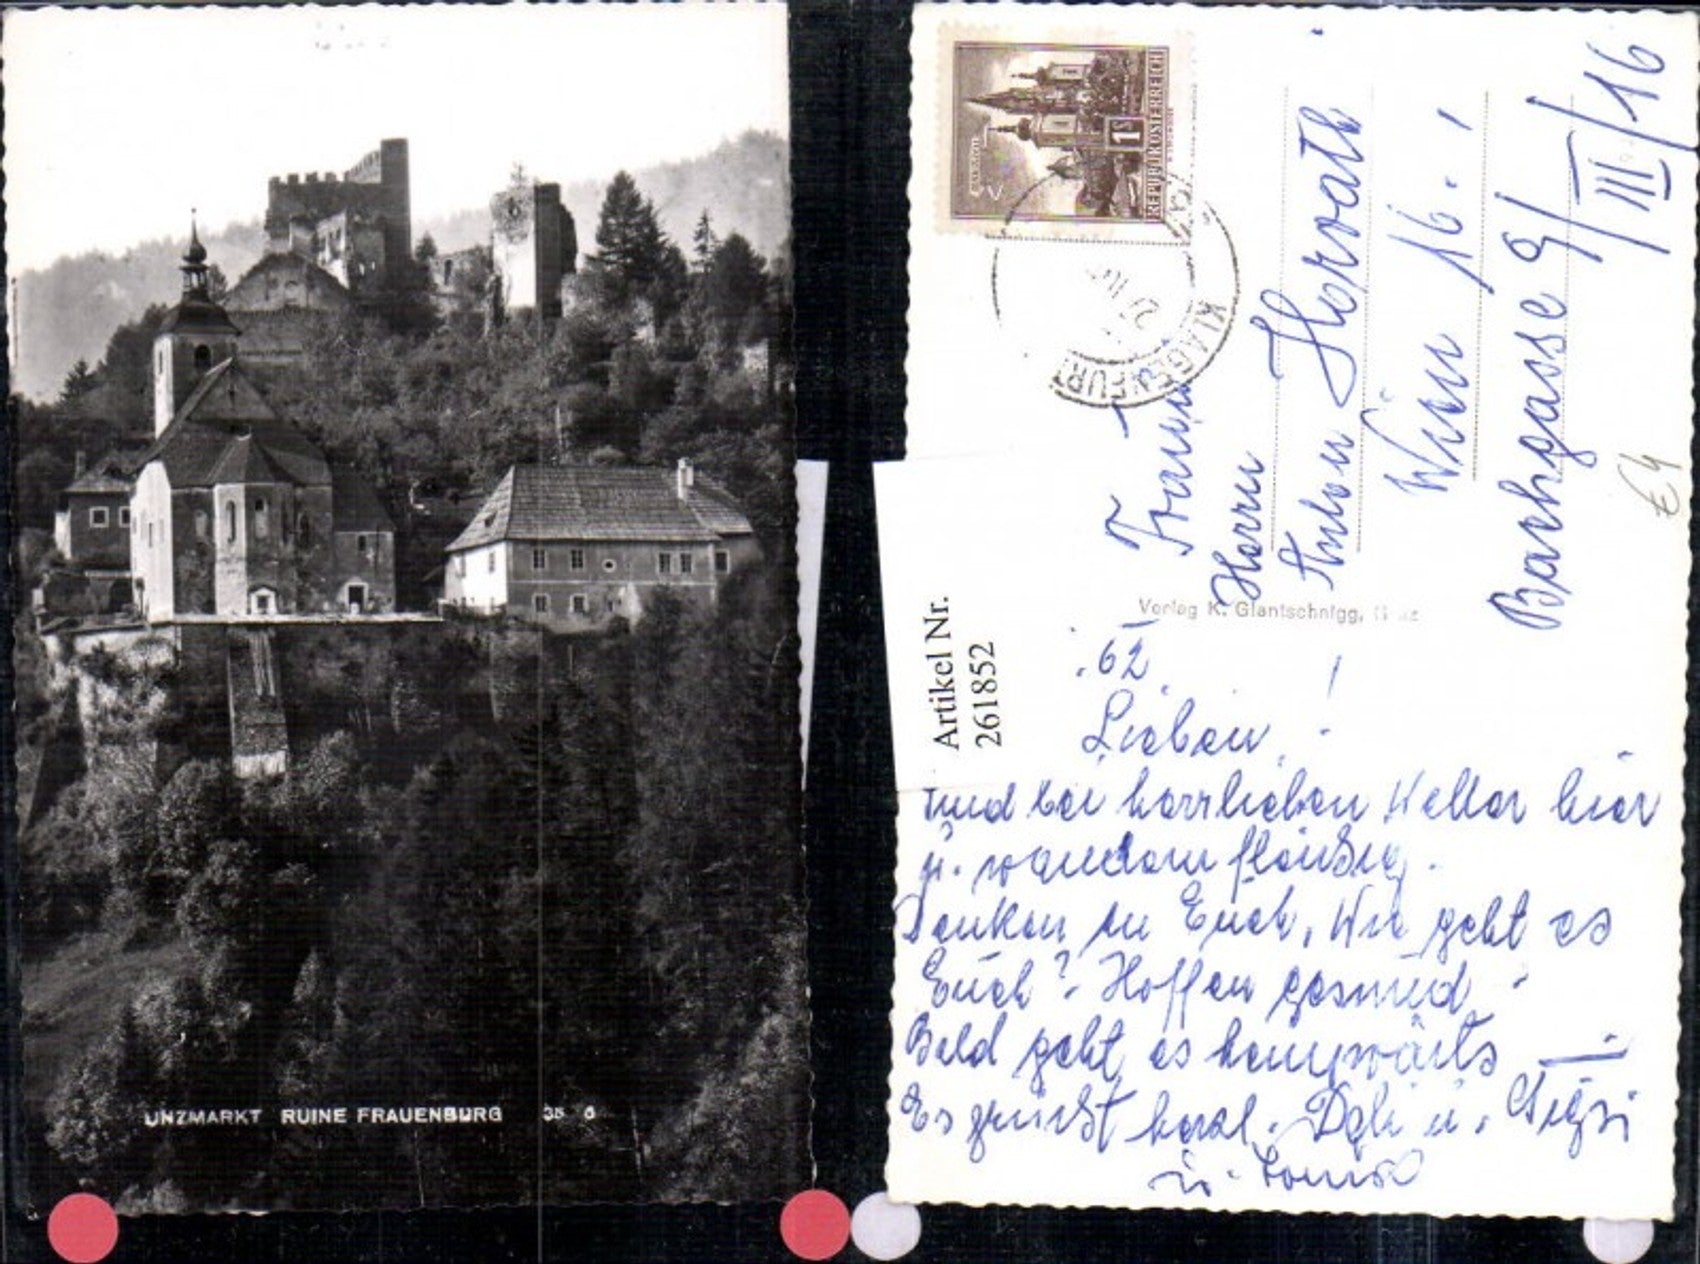 UNZMARKT RUINE FRAUENBURG 35 6
MARIAZELL
1 S
REPUBLIK ÖSTERREICH
KLAGENFURT
Familie
Herrn
Anton Horvath
Wien 16.
Bachgasse 9/III/16
€4
Verlag K. Glantschnigg, Graz
Artikel Nr.
261852
62
Lieben !
sind bei herrlichen Wetter hier
u. wandern fleißig.
Denken an Euch, Wie geht es
Euch? Hoffen gesund.
Bald geht es heimwärts
Es grüßt herzl. u. Sigsi
u.